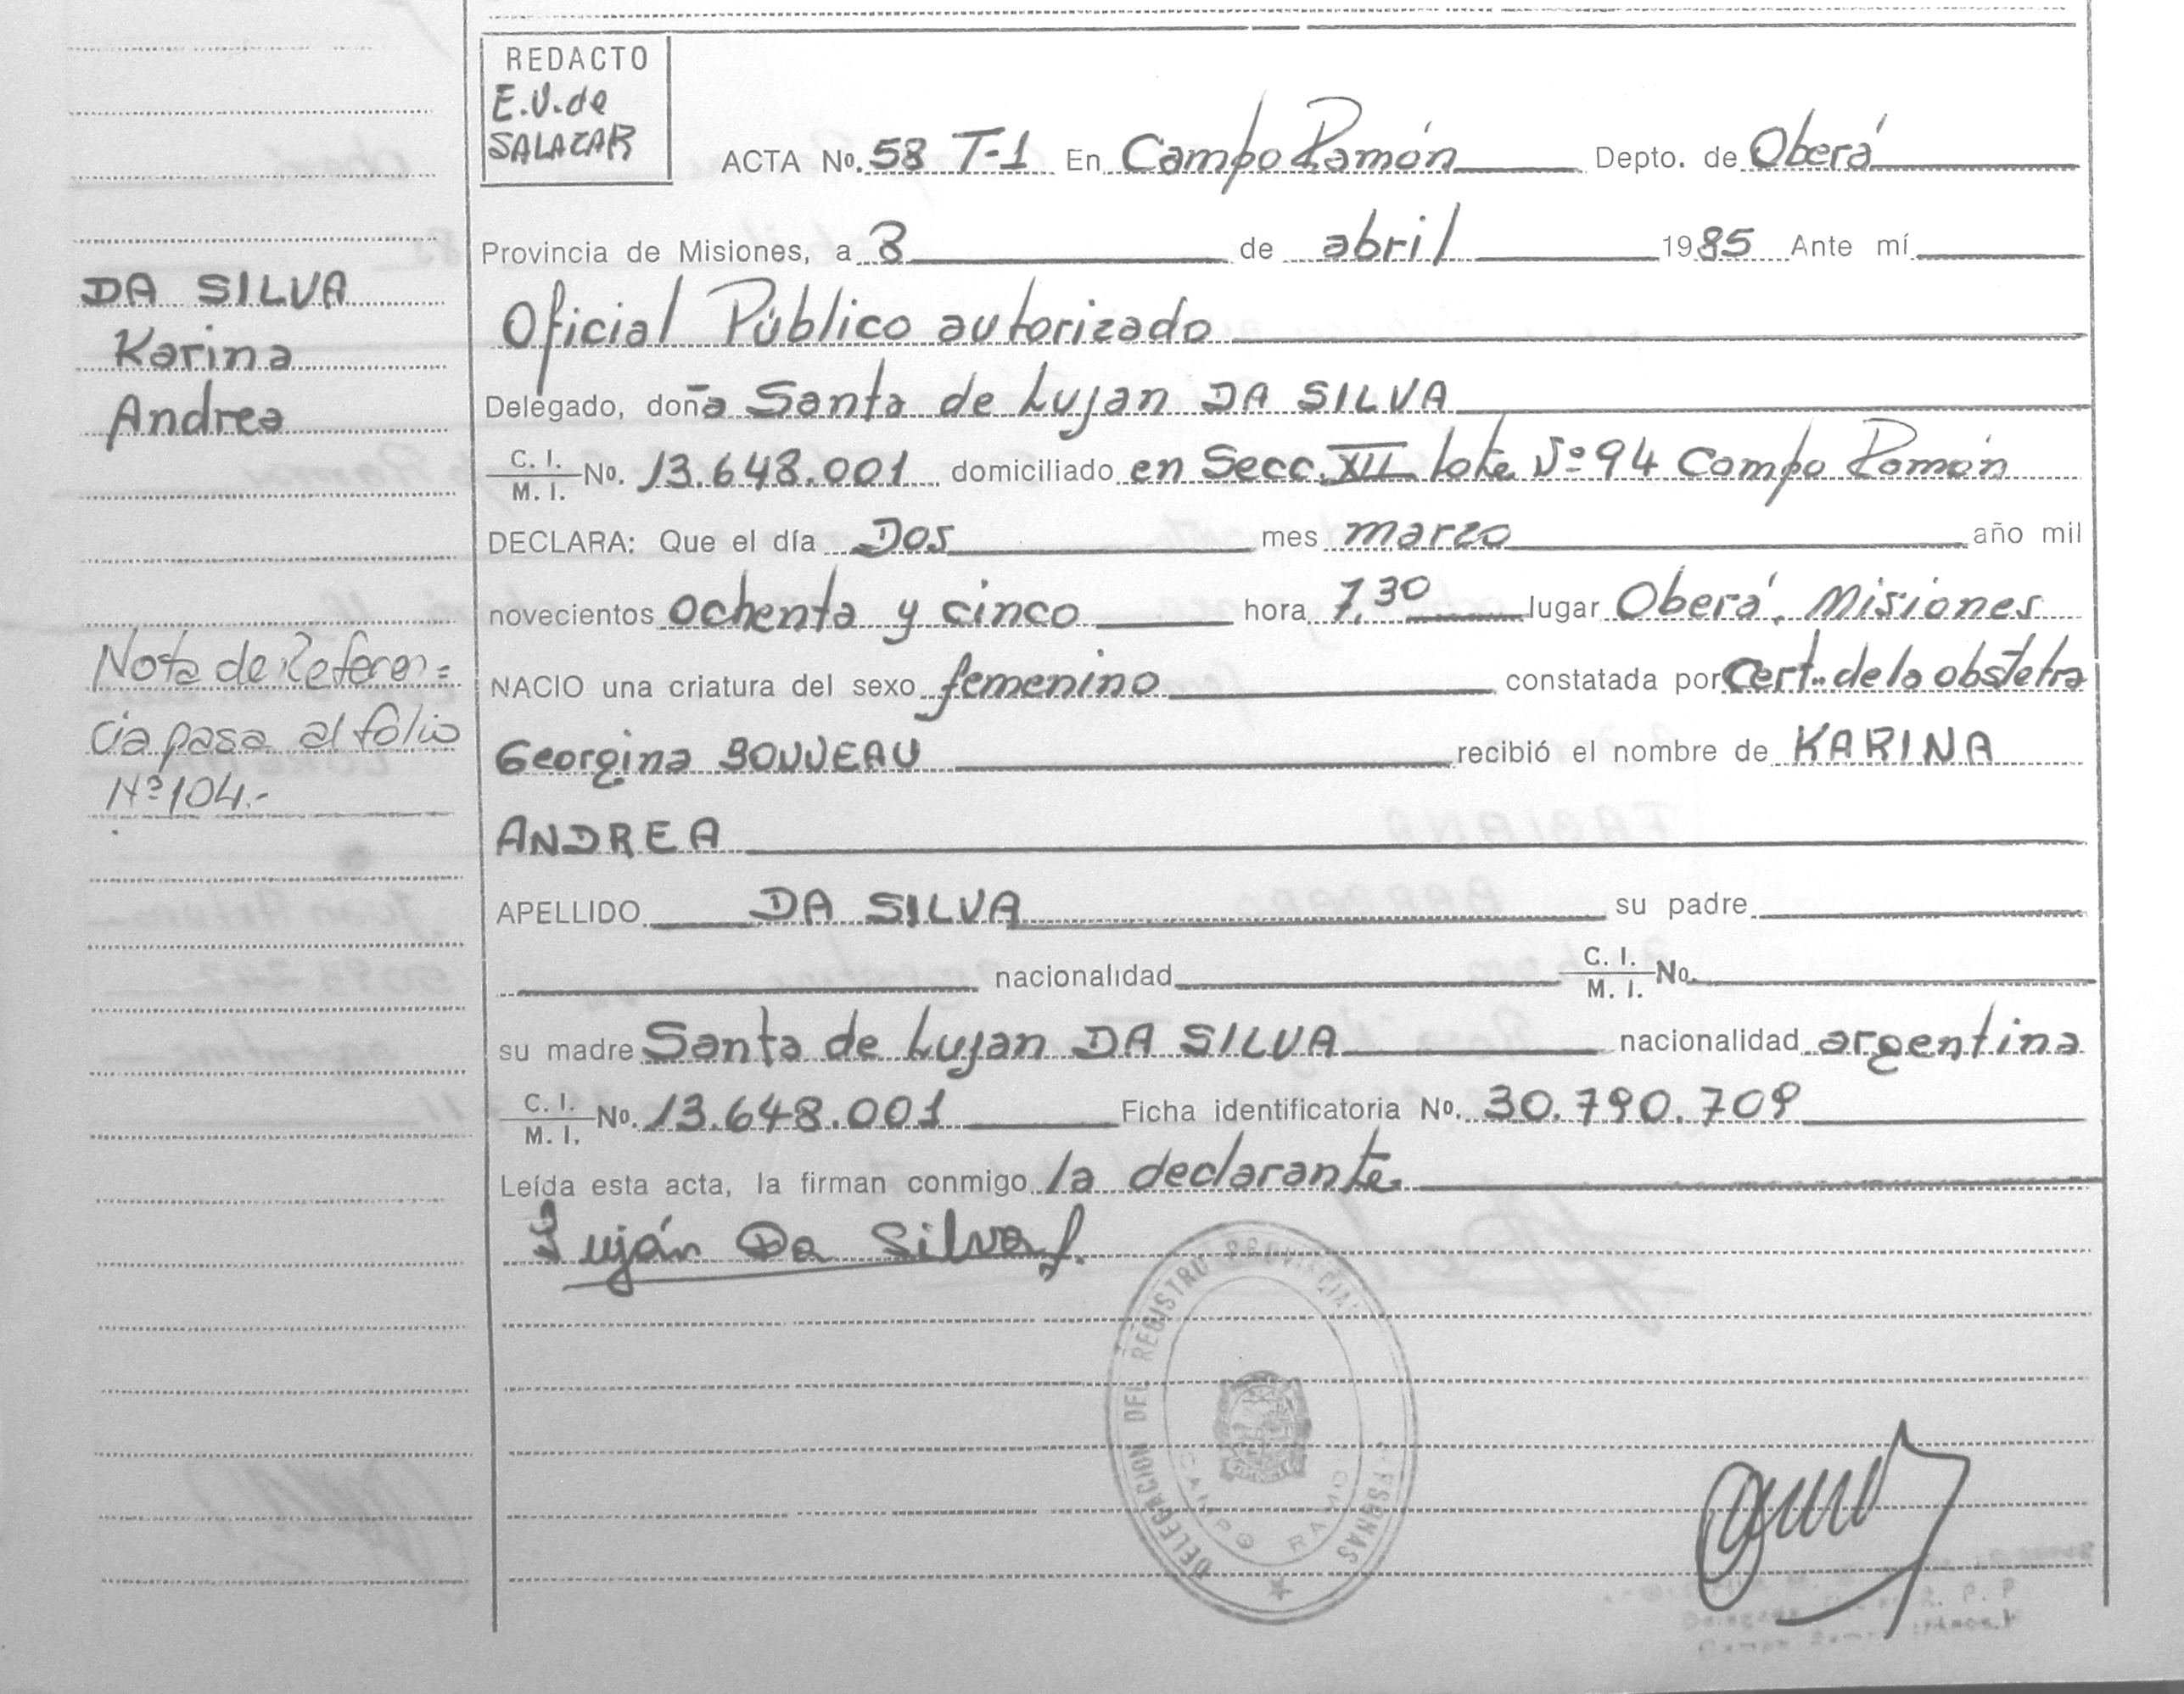 REDACTO
E.V. de
SALAZAR
ACTA No. 58 T-1 En Campo Ramón Depto. de Oberá
Provincia de Misiones, a 8 de abril 1985 Ante mí
Oficial Público autorizado
Delegado, doña Santa de Lujan DA SILVA
C. I. / M. I. No. 13.648.001 domiciliado en Secc. XII lote Nº 94 Campo Ramón
DECLARA: Que el día Dos mes marzo año mil
novecientos ochenta y cinco hora 7,30 lugar Oberá, Misiones
NACIO una criatura del sexo femenino constatada por Cert. de la obstetra
Georgina BOUVEAU recibió el nombre de KARINA
ANDREA
APELLIDO DA SILVA su padre
nacionalidad C. I. / M. I. No.
su madre Santa de Lujan DA SILVA nacionalidad argentina
C. I. / M. I. No. 13.648.001 Ficha identificatoria No. 30.790.709
Leída esta acta, la firman conmigo la declarante
Luján Da Silva
DELEGACION DEL REGISTRO PROVINCIAL
CAMPO RAMON
DA SILVA
Karina
Andrea
Nota de Referen=
cia pasa al folio
Nº 104.-